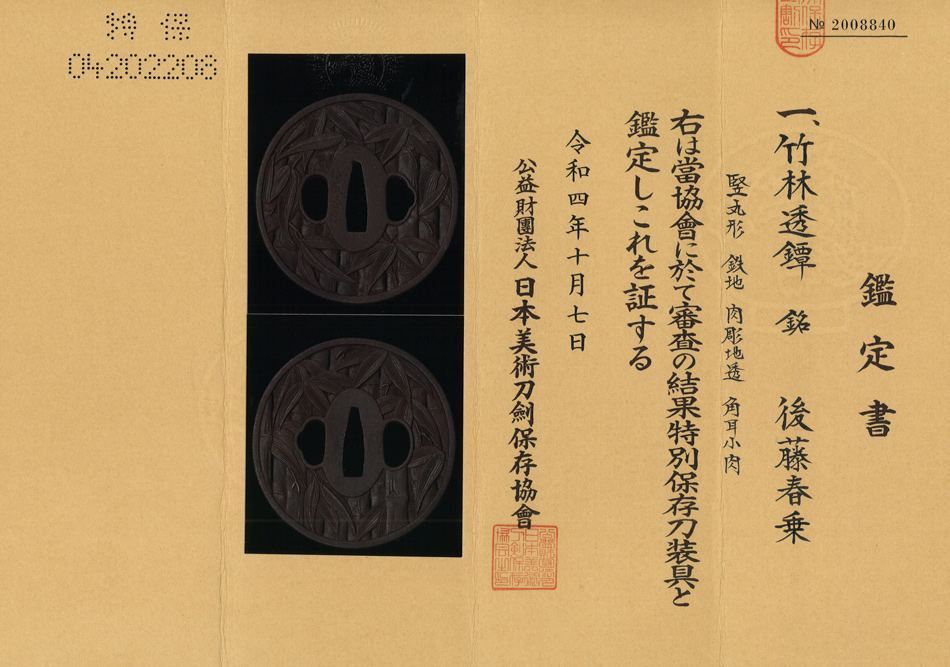 № 2008840
鑑定書
一、竹林透鐔 銘 後藤春乗
竪丸形 鉄地 肉彫地透 角耳小肉
右は當協會に於て審査の結果特別保存刀装具と
鑑定しこれを証する
令和四年十月七日
公益財團法人 日本美術刀劍保存協會
特保
04202208